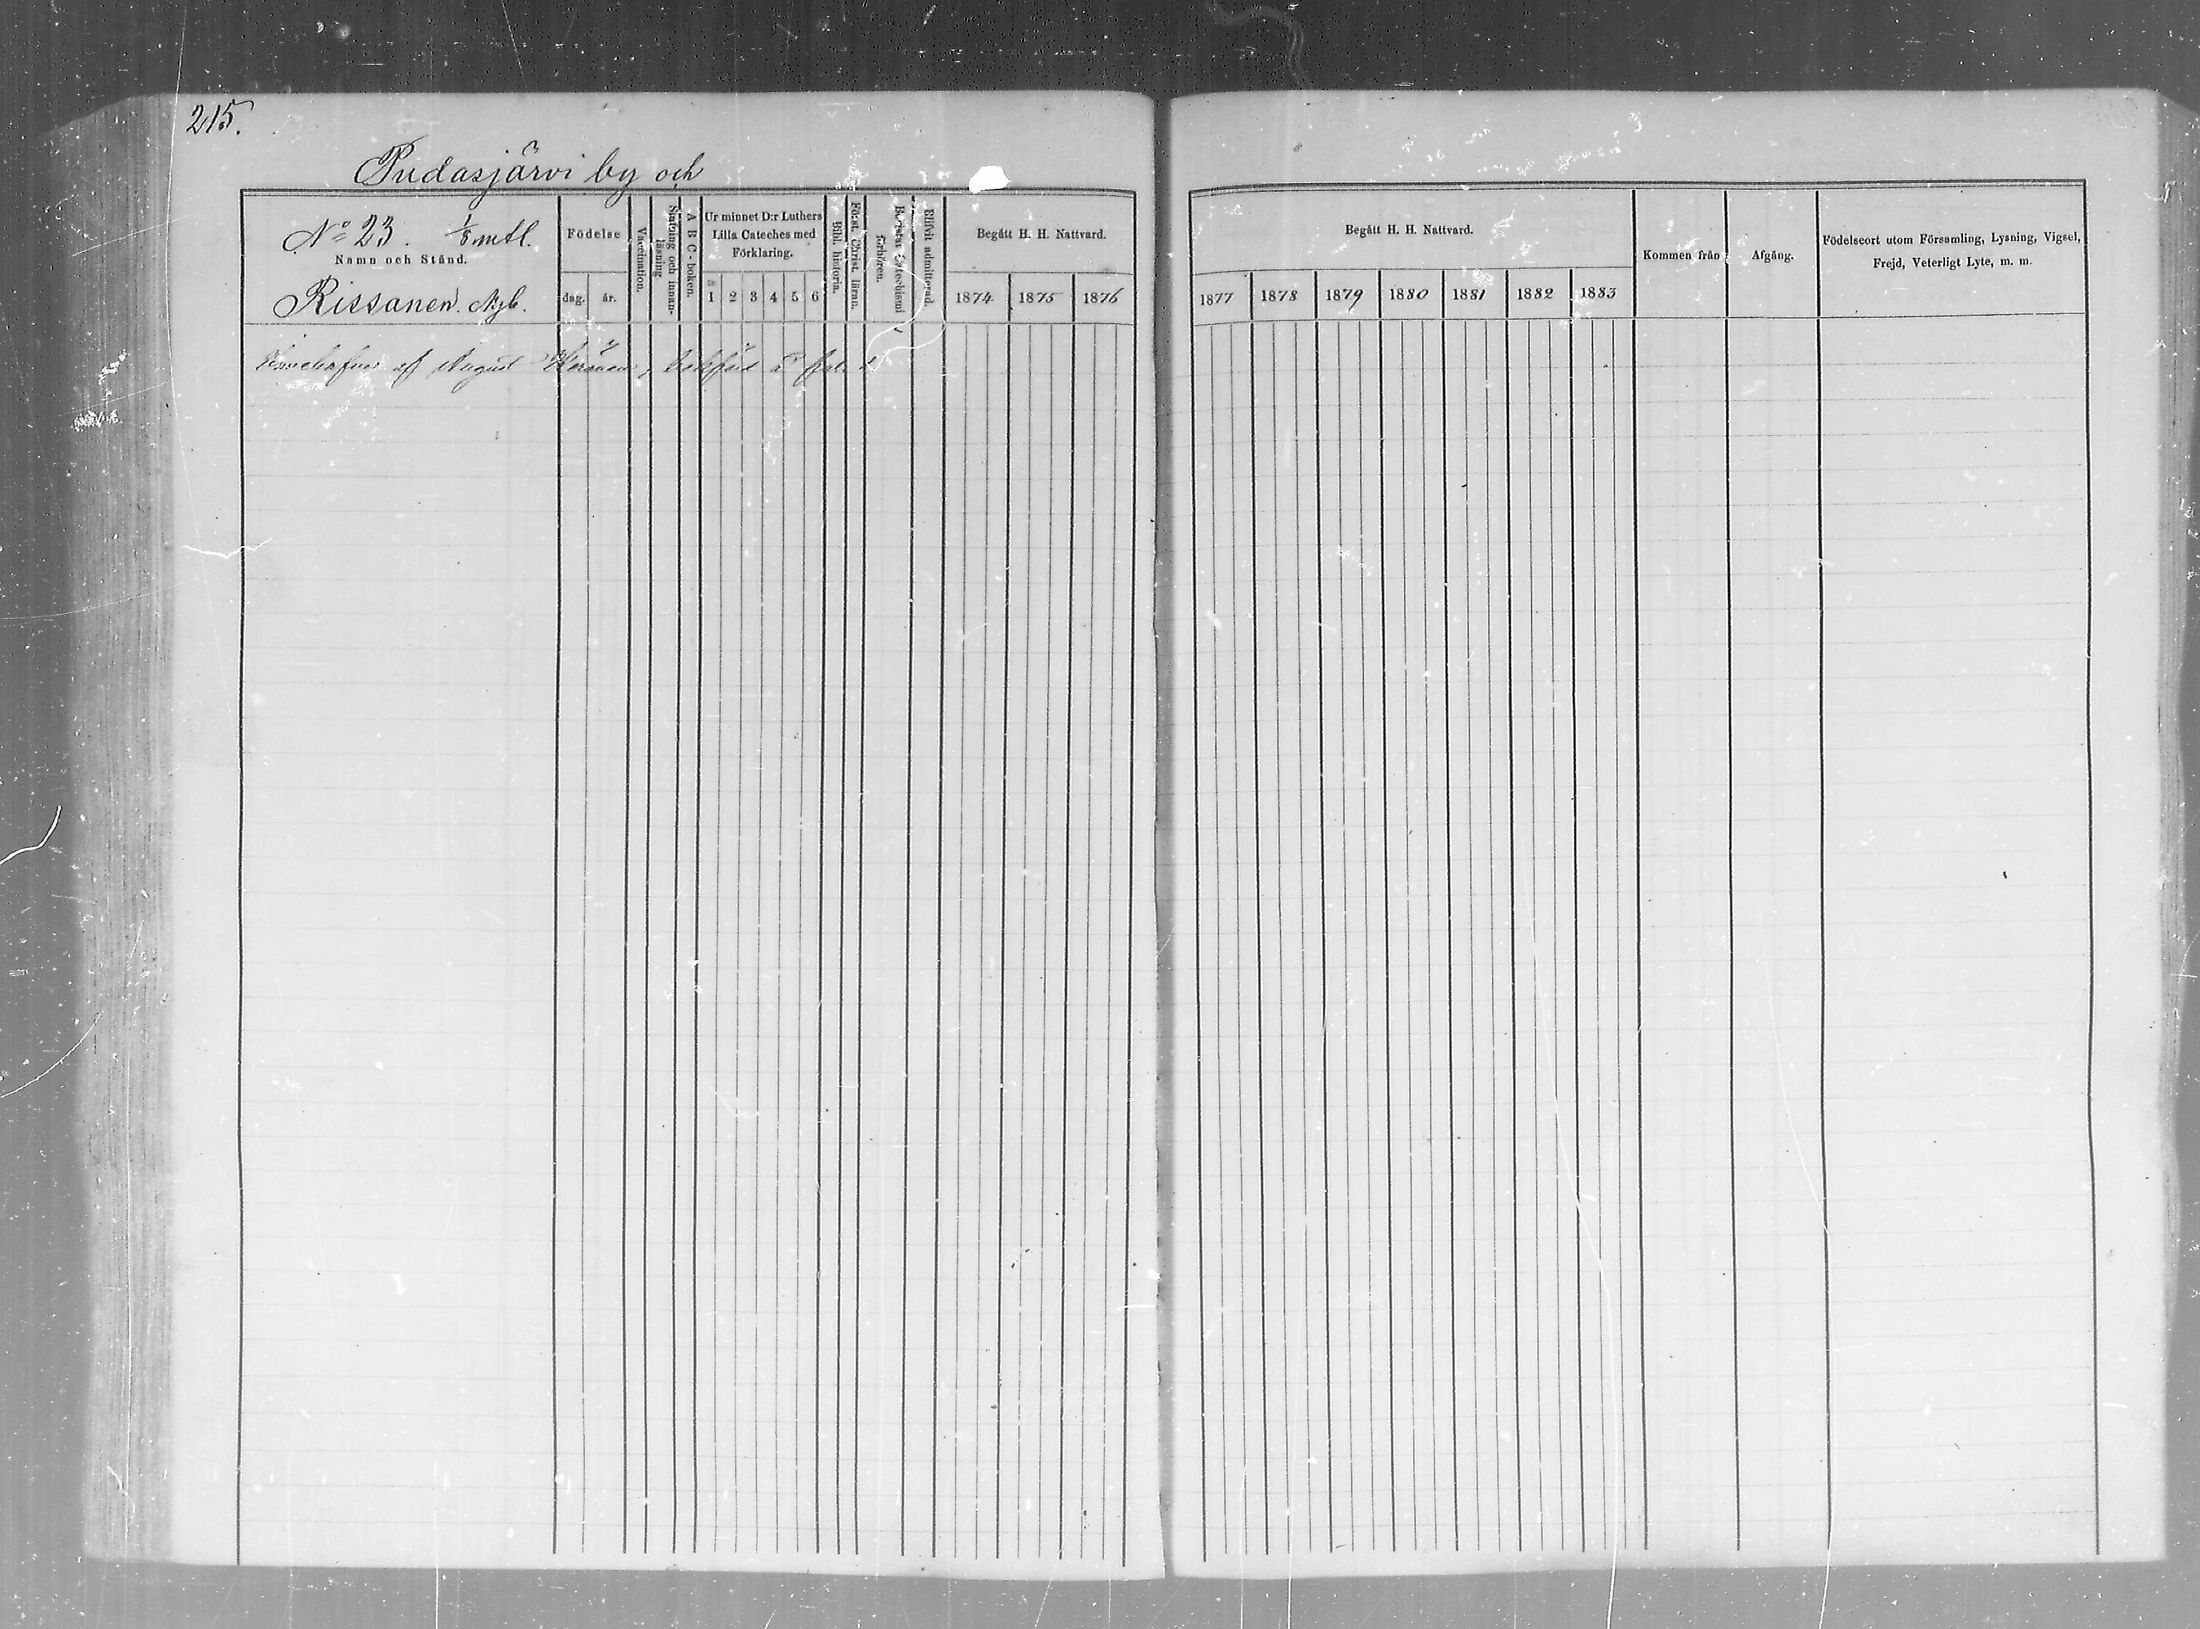 215.
Pudasjärvi by och
No 23. 1/8 mtl.
Namn och Stånd.
Rissanen. Nyb.
Födelse
dag. år.
Vaccination.
Stafning och innan-
läsning
A B C - boken.
Ur minnet D:r Luthers
Lilla Cateches med
Förklaring.
1 2 3 4 5 6
Bibl. historia.
Först. Christ. läran.
Bevistat Catechismi
förhören.
Blifvit admitterad.
Begått H. H. Nattvard.
1874 1875 1876
Begått H. H. Nattvard.
1877 1878 1879 1880 1881 1882 1883
Kommen från
Afgång.
Födelseort utom Församling, Lysning, Vigsel,
Frejd, Veterligt Lyte, m. m.
af August Keränen, bokförd å